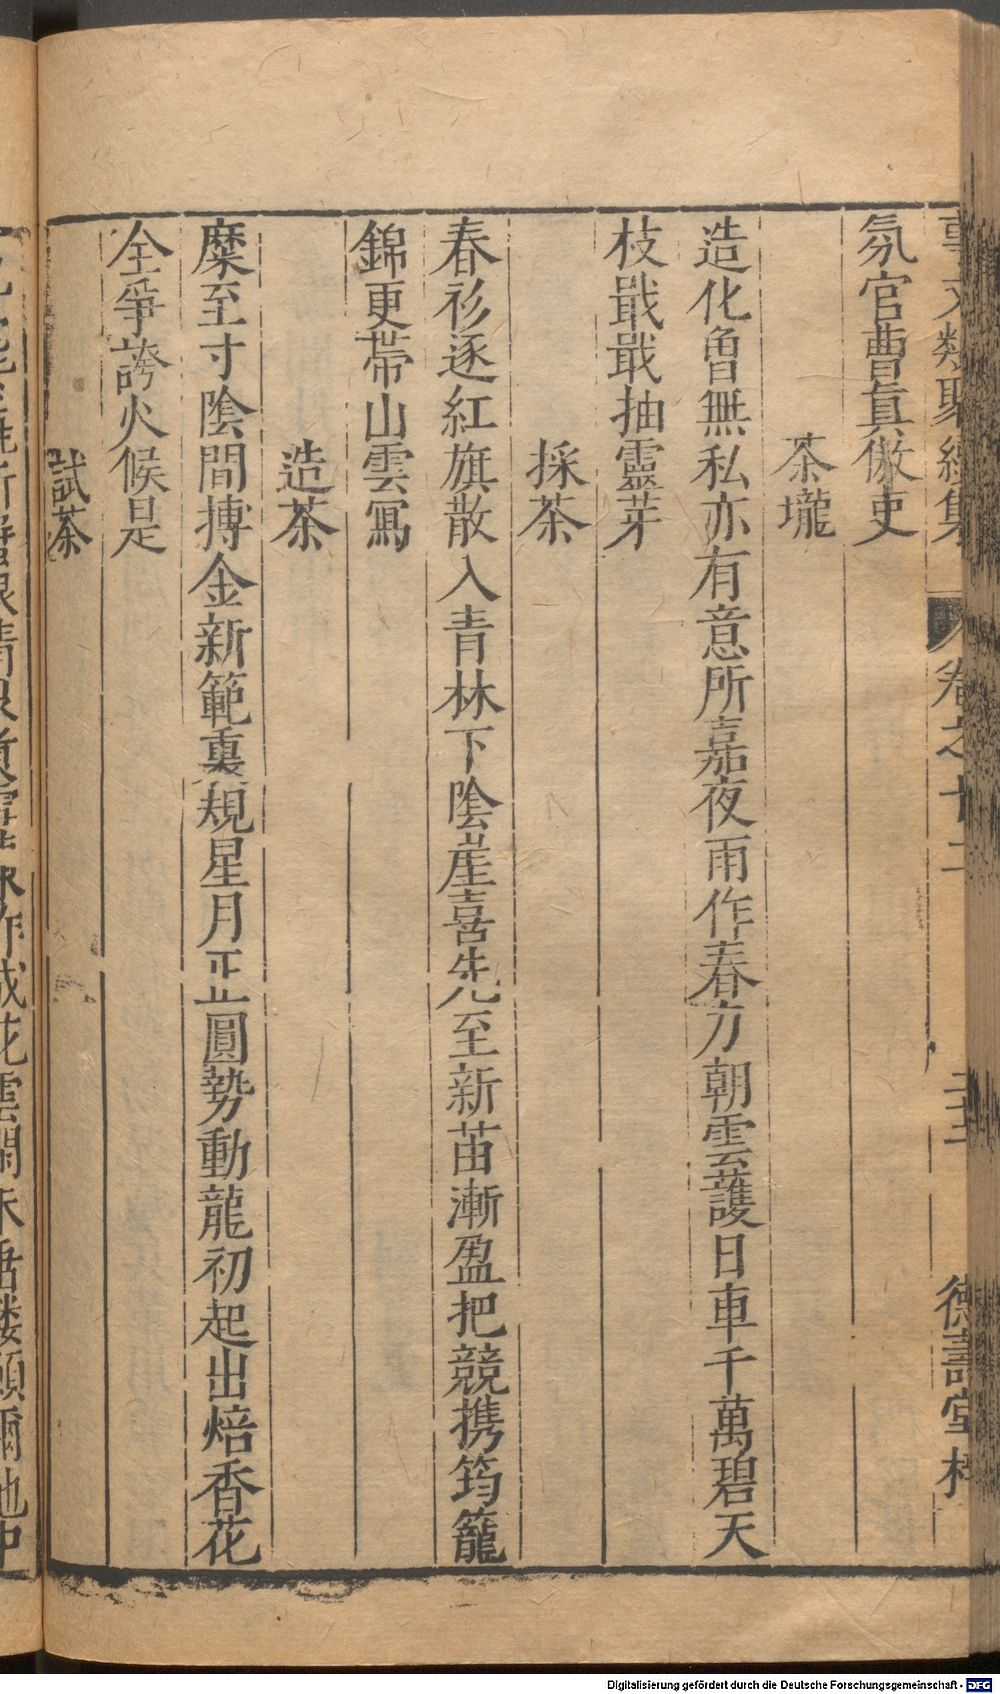 事文類聚續集 卷之十二 德壽堂梓
氛官曹真傲吏
茶壠
造化曾無私亦有意所嘉夜雨作春力朝雲護日車千萬碧天
枝戢戢抽靈芽
採茶
春衫逐紅旗散入青林下陰崖喜先至新苗漸盈把競携筠籠
錦更帶山雲寫
造茶
糜至寸陰間搏金新範裏規星月正圓勢動龍初起出焙香花
全爭誇火候是
試茶
Digitalisierung gefördert durch die Deutsche Forschungsgemeinschaft - DFG